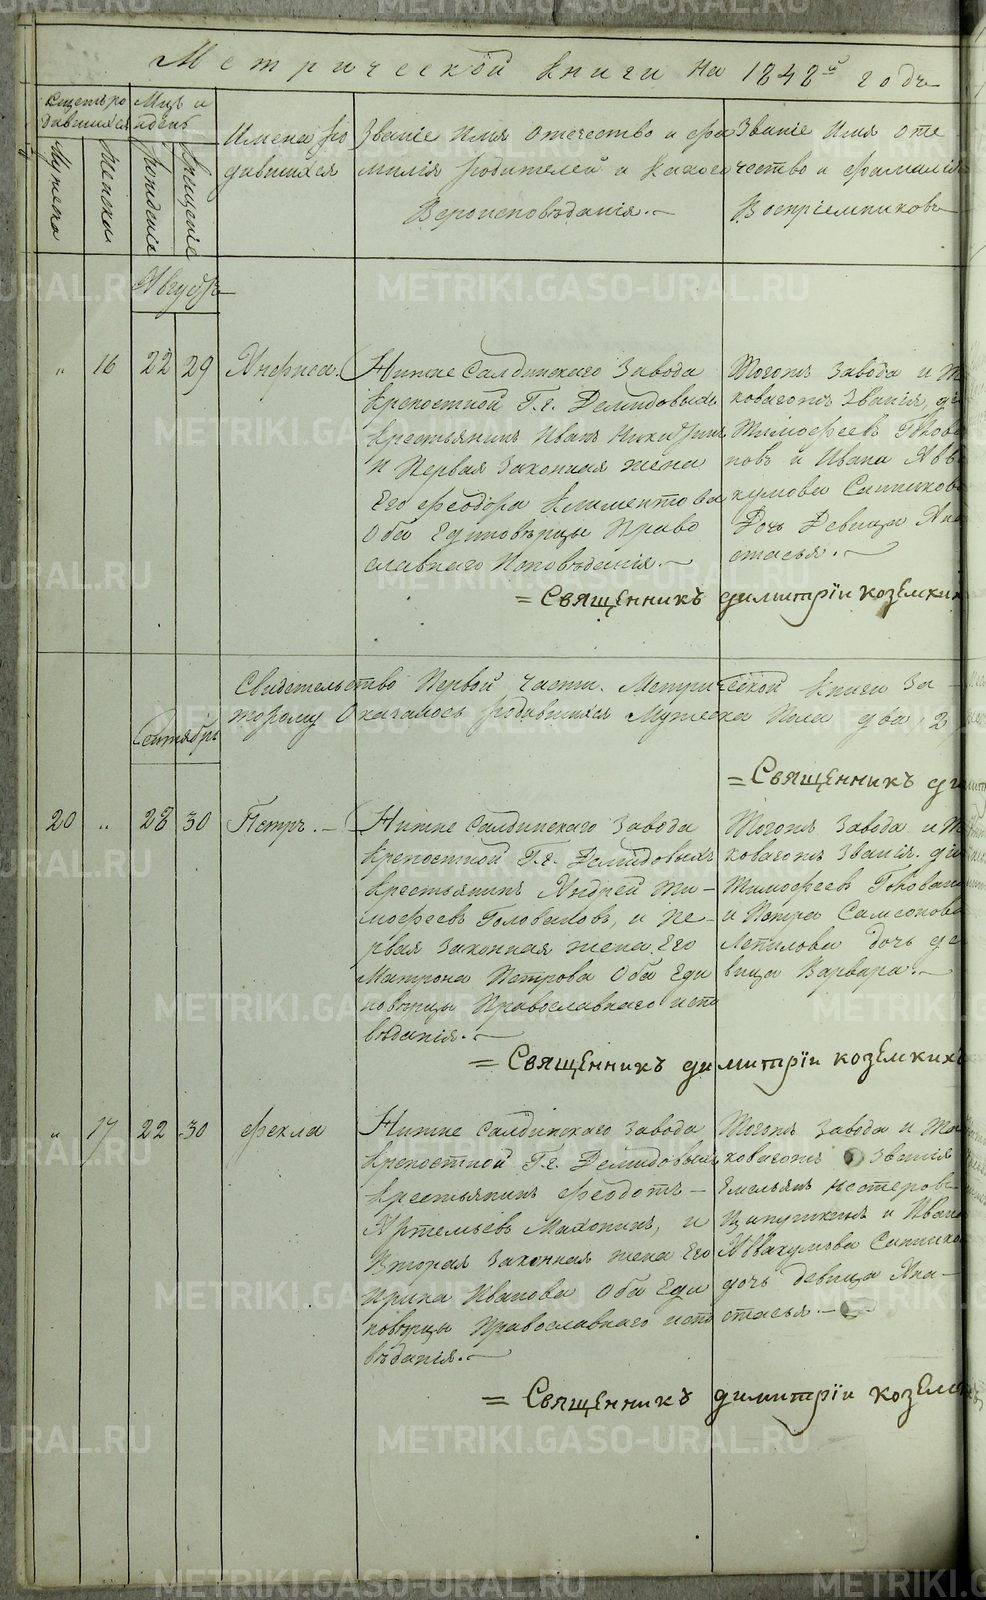 Метрической книги на 1848й годъ
Счетъ ро
дившихся
Мца и
день
Мужеска
Женска
Рожденіе
Крещеніе
Имена ро
дившихся
Званіе Имя отечество и фа
милія родителей и Какого
Вероисповѣданія.
Званіе Имя оте
чество и фамилія
Воспріемниковъ
Августъ
" 16 22 29 Анфиса.
Нижне Салдинскаго Завода
крепостной Г.г. Демидовыхъ
крестьянинъ Иванъ Никитинъ
и Первая Законная жена
Его Феодора Климентова
Оба Единовѣрцы Право
славнаго Исповѣданія.
Тогожъ Завода и Т
ковагожъ Званія,
Тимофеевъ
повъ и Ивана Авва
кумова Ситников
Дочь Девица Ана
стасья.
= Священникъ димитріи козелки
Свидетельство Первой части. Метрической Книги За
торому Оказалось родившихся Мужеска Пола два, 2
= Священникъ д
Сентябрь
20 " 28 30 Петръ.
Нижне Салдинскаго Завода
Крепостной Г.г. Демидовыхъ
крестьянинъ Андрей Ти-
мофеевъ Головановъ, и пе-
рвая Законная жена Его
Матрона Петрова Оба Еди
новѣрцы Православнаго испо
вѣданія.
Тогожъ Завода и Т
ковагожъ Званія.
Тимофеевъ Голован
и Петра Самсонова
дочь де
вица Варвара.
= Священникъ димитріи козелкихъ
" 17 22 30 Фекла
Нижне Салдинскаго Завода
Крепостной Г.г. Демидовыхъ
Крестьянинъ Феодотъ
Артемьевъ Махонинъ, и
Вторая Законная жена Его
Ирина Иванова Оба Еди
новѣрцы Православнаго испо
вѣданія.
Тогожъ Завода и Та
ковагожъ Званія
Емельянъ Нестеровъ
Ципушкинъ и Ивана
Аввакумова Ситнико
дочь девица Ана-
стасья.
= Священникъ димитріи козел
METRIKI.GASO-URAL.RU